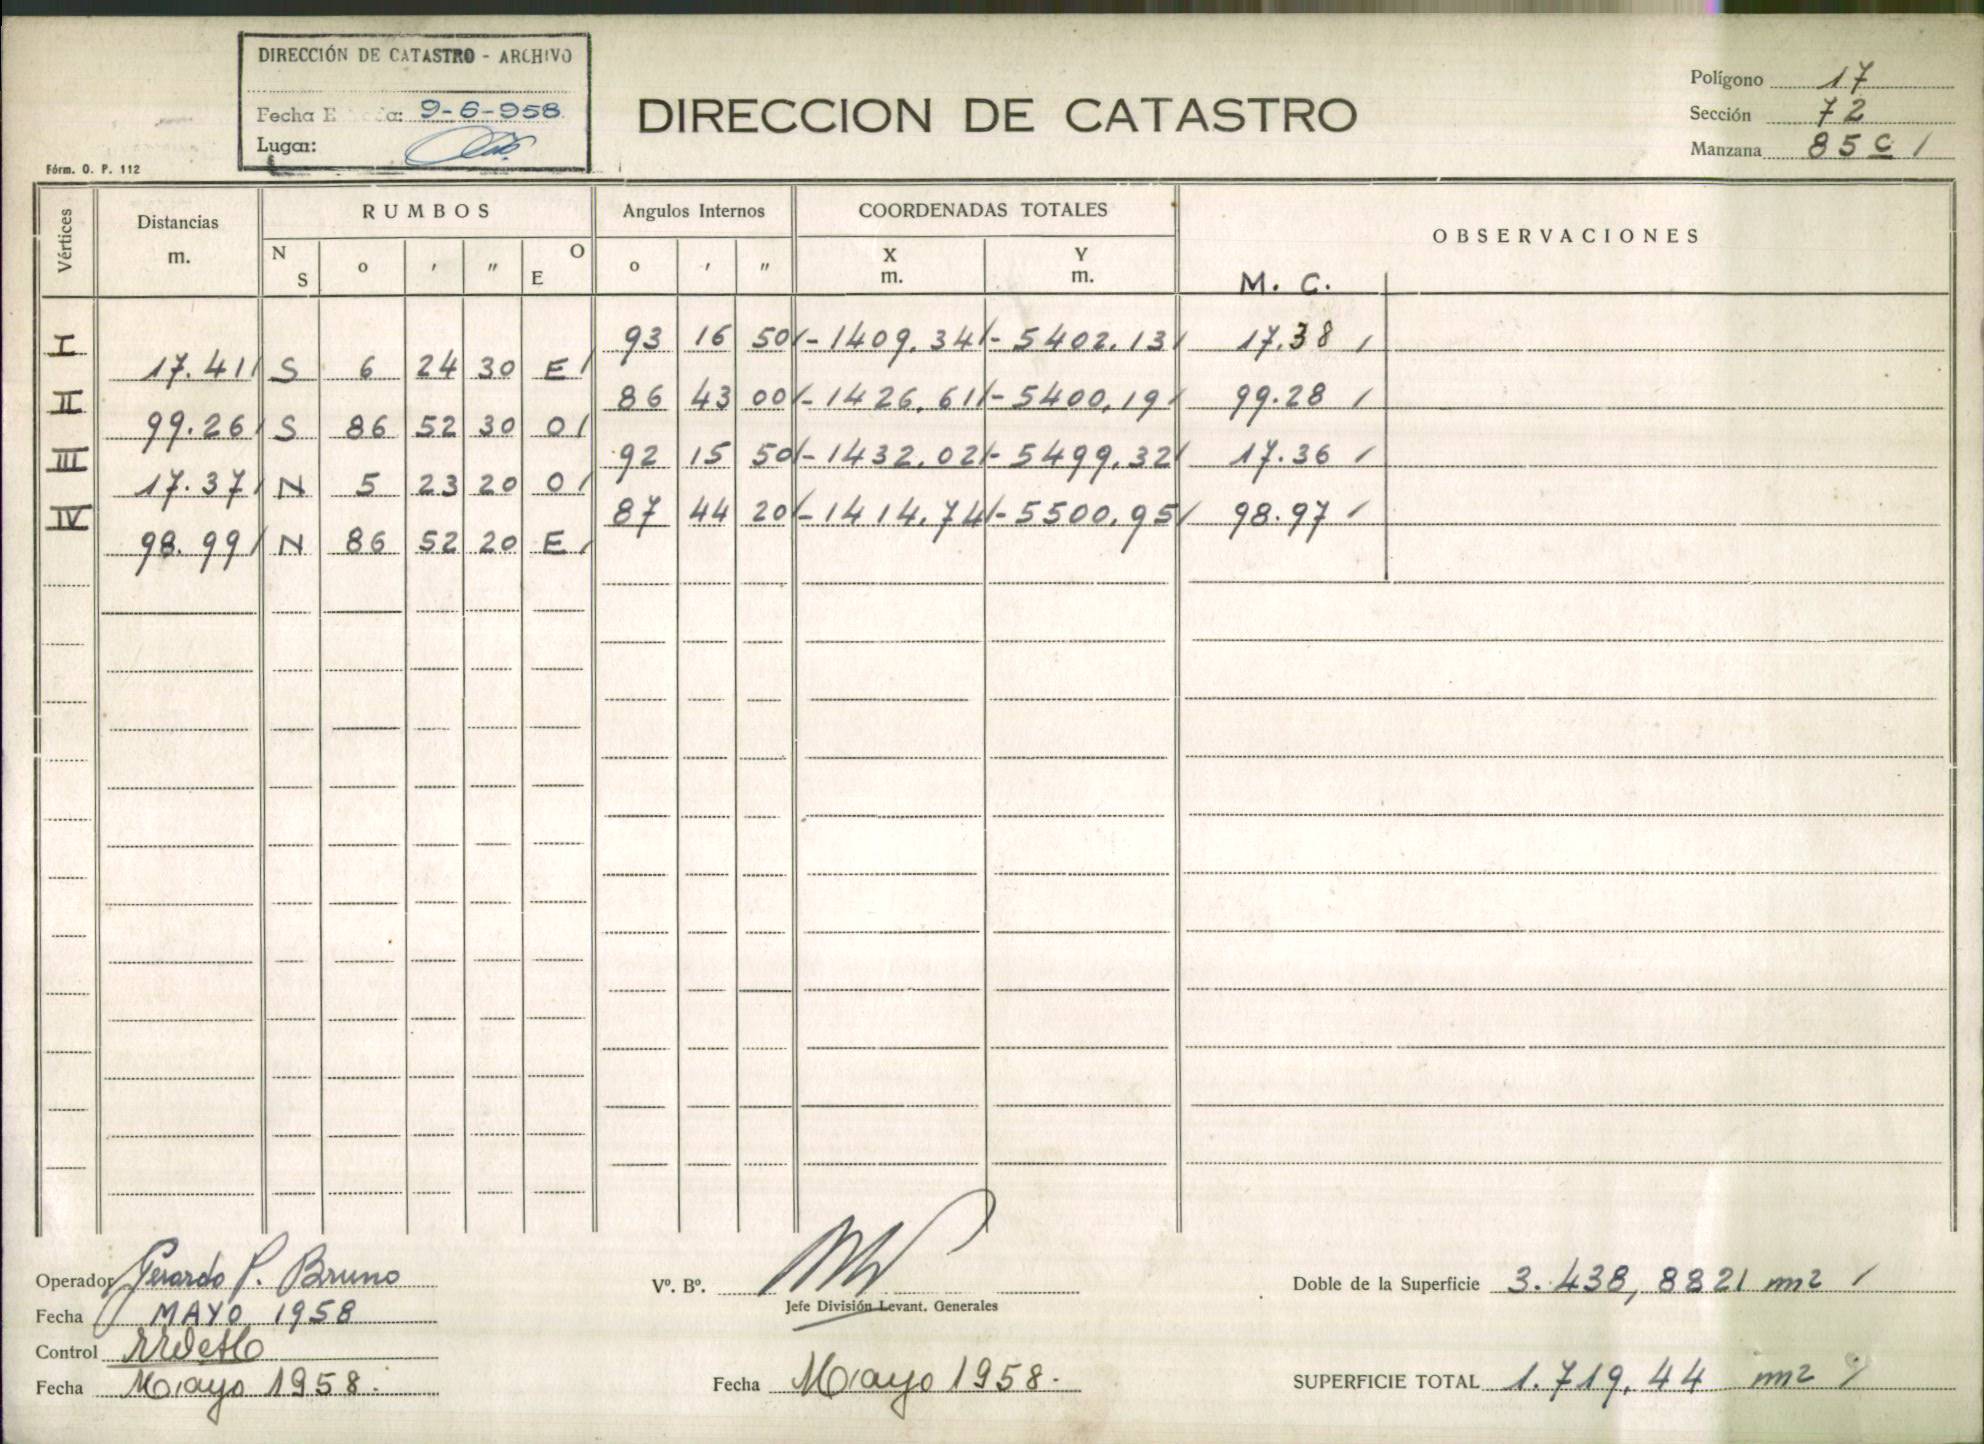 DIRECCIÓN DE CATASTRO - ARCHIVO
Fecha E da: 9-6-958
Lugar:
Fórm. O. P. 112
DIRECCION DE CATASTRO
Polígono 17
Sección 72
Manzana 85 c /
Vértices Distancias m. RUMBOS Angulos Internos COORDENADAS TOTALES OBSERVACIONES
N S o ' " O E o ' " X m. Y m. M. C.
I 93 16 50 -1409.34 -5402.13 17.38
17.41 S 6 24 30 E
II 86 43 00 -1426.61 -5400.19 99.28
99.26 S 86 52 30 O
III 92 15 50 -1432.02 -5499.32 17.36
17.37 N 5 23 20 O
IV 87 44 20 -1414.74 -5500.95 98.97
98.99 N 86 52 20 E
Operador Gerardo P. Bruno
Fecha MAYO 1958
Control
Fecha Mayo 1958.
Vº. Bº.
Jefe División Levant. Generales
Fecha Mayo 1958.
Doble de la Superficie 3.438,8821 m2
SUPERFICIE TOTAL 1.719,44 m2